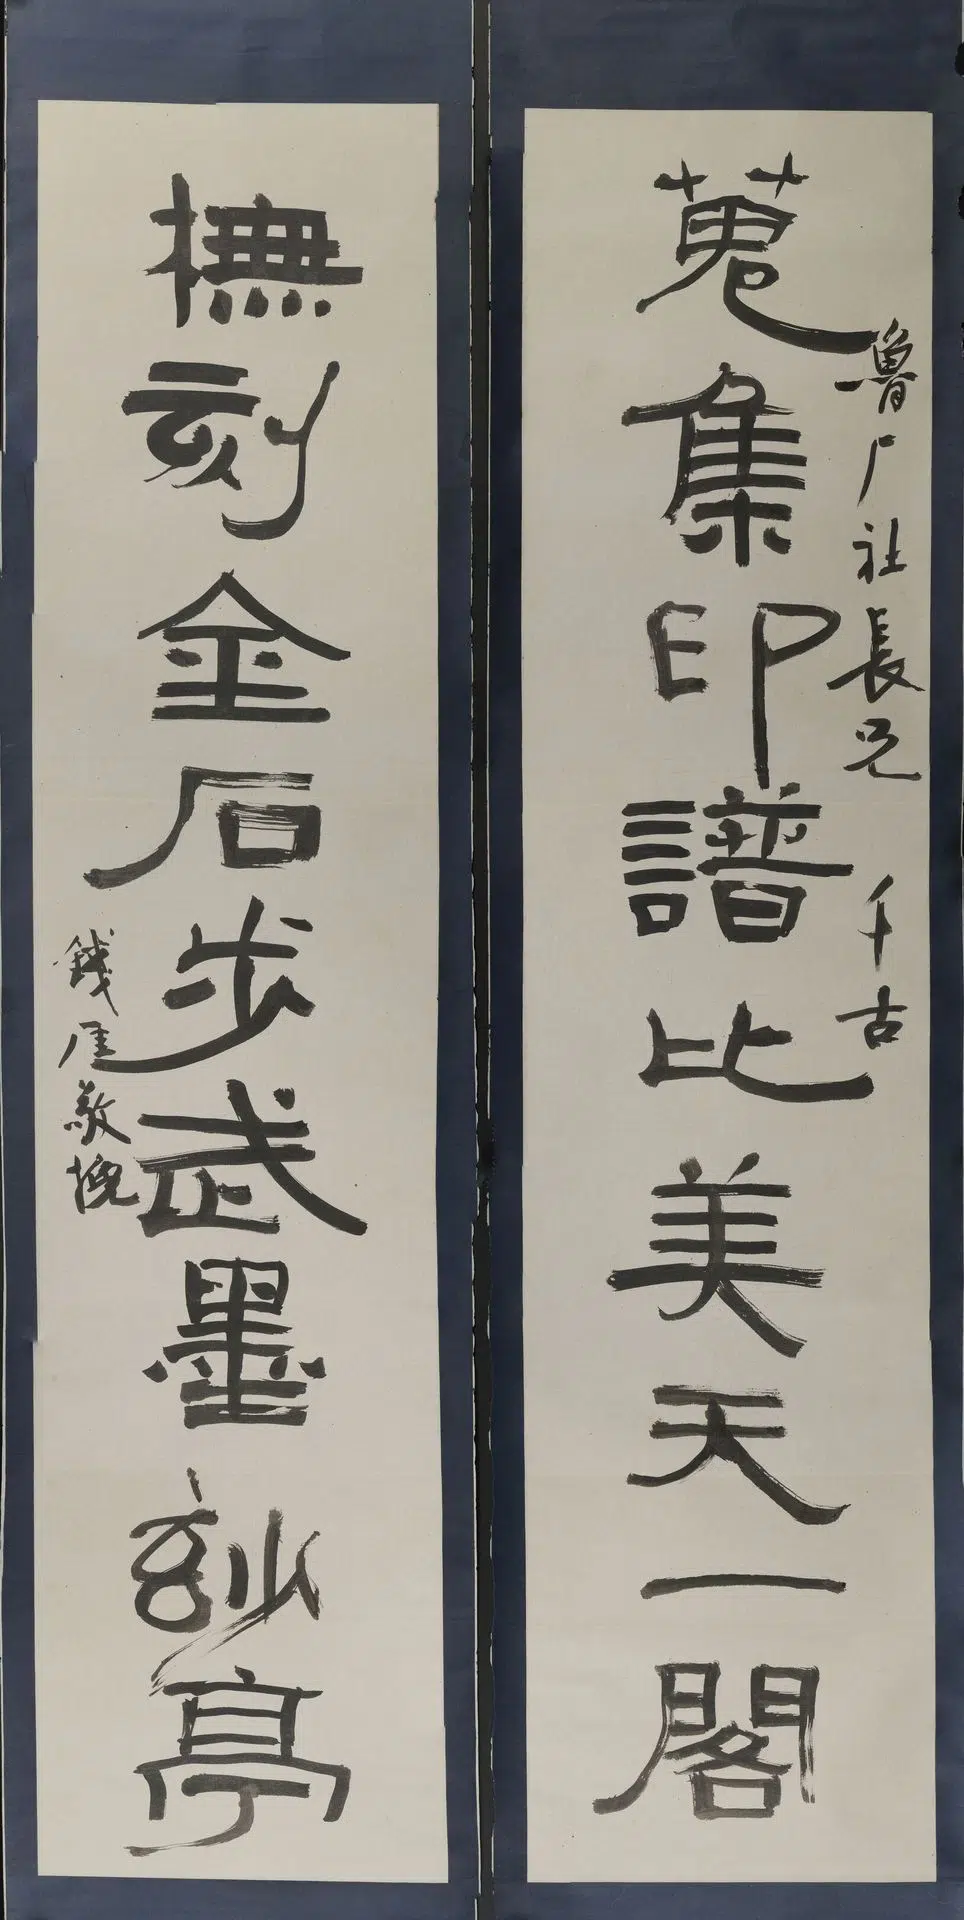 蒐集印譜比美天一閣
魯厂社長兄 千古
撫刻金石步武墨玅亭
錢厓敬挽